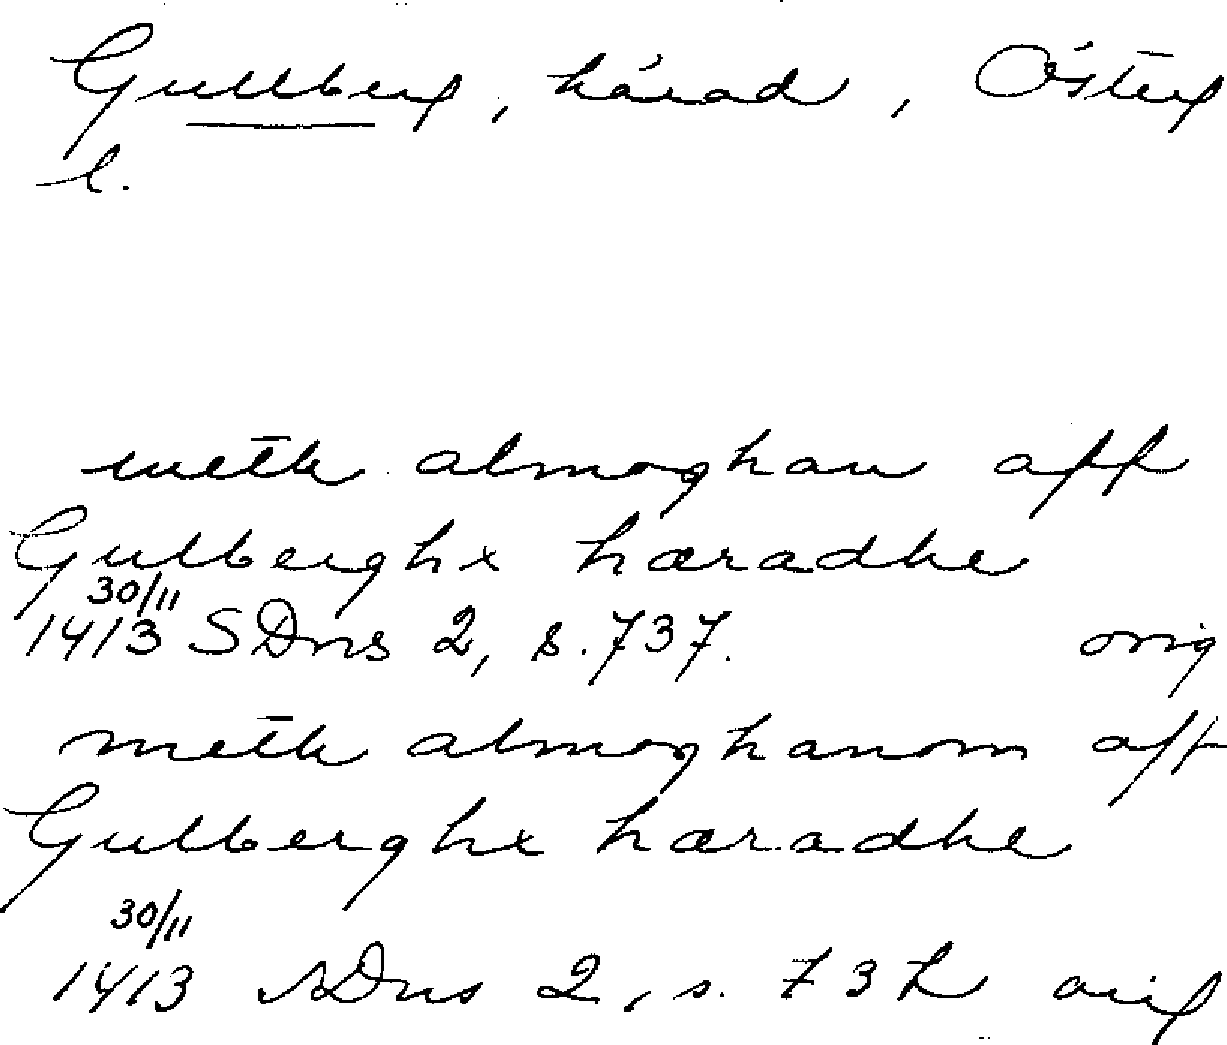 Gullberg, härad, Österg
l.
meth almoghan aff
Gulberghx hæradhe
30/11
1413 SDns 2, s. 737. orig
meth almoghanom aff
Gulberghx hæradhe
30/11
1413 SDns 2, s. 737 orig